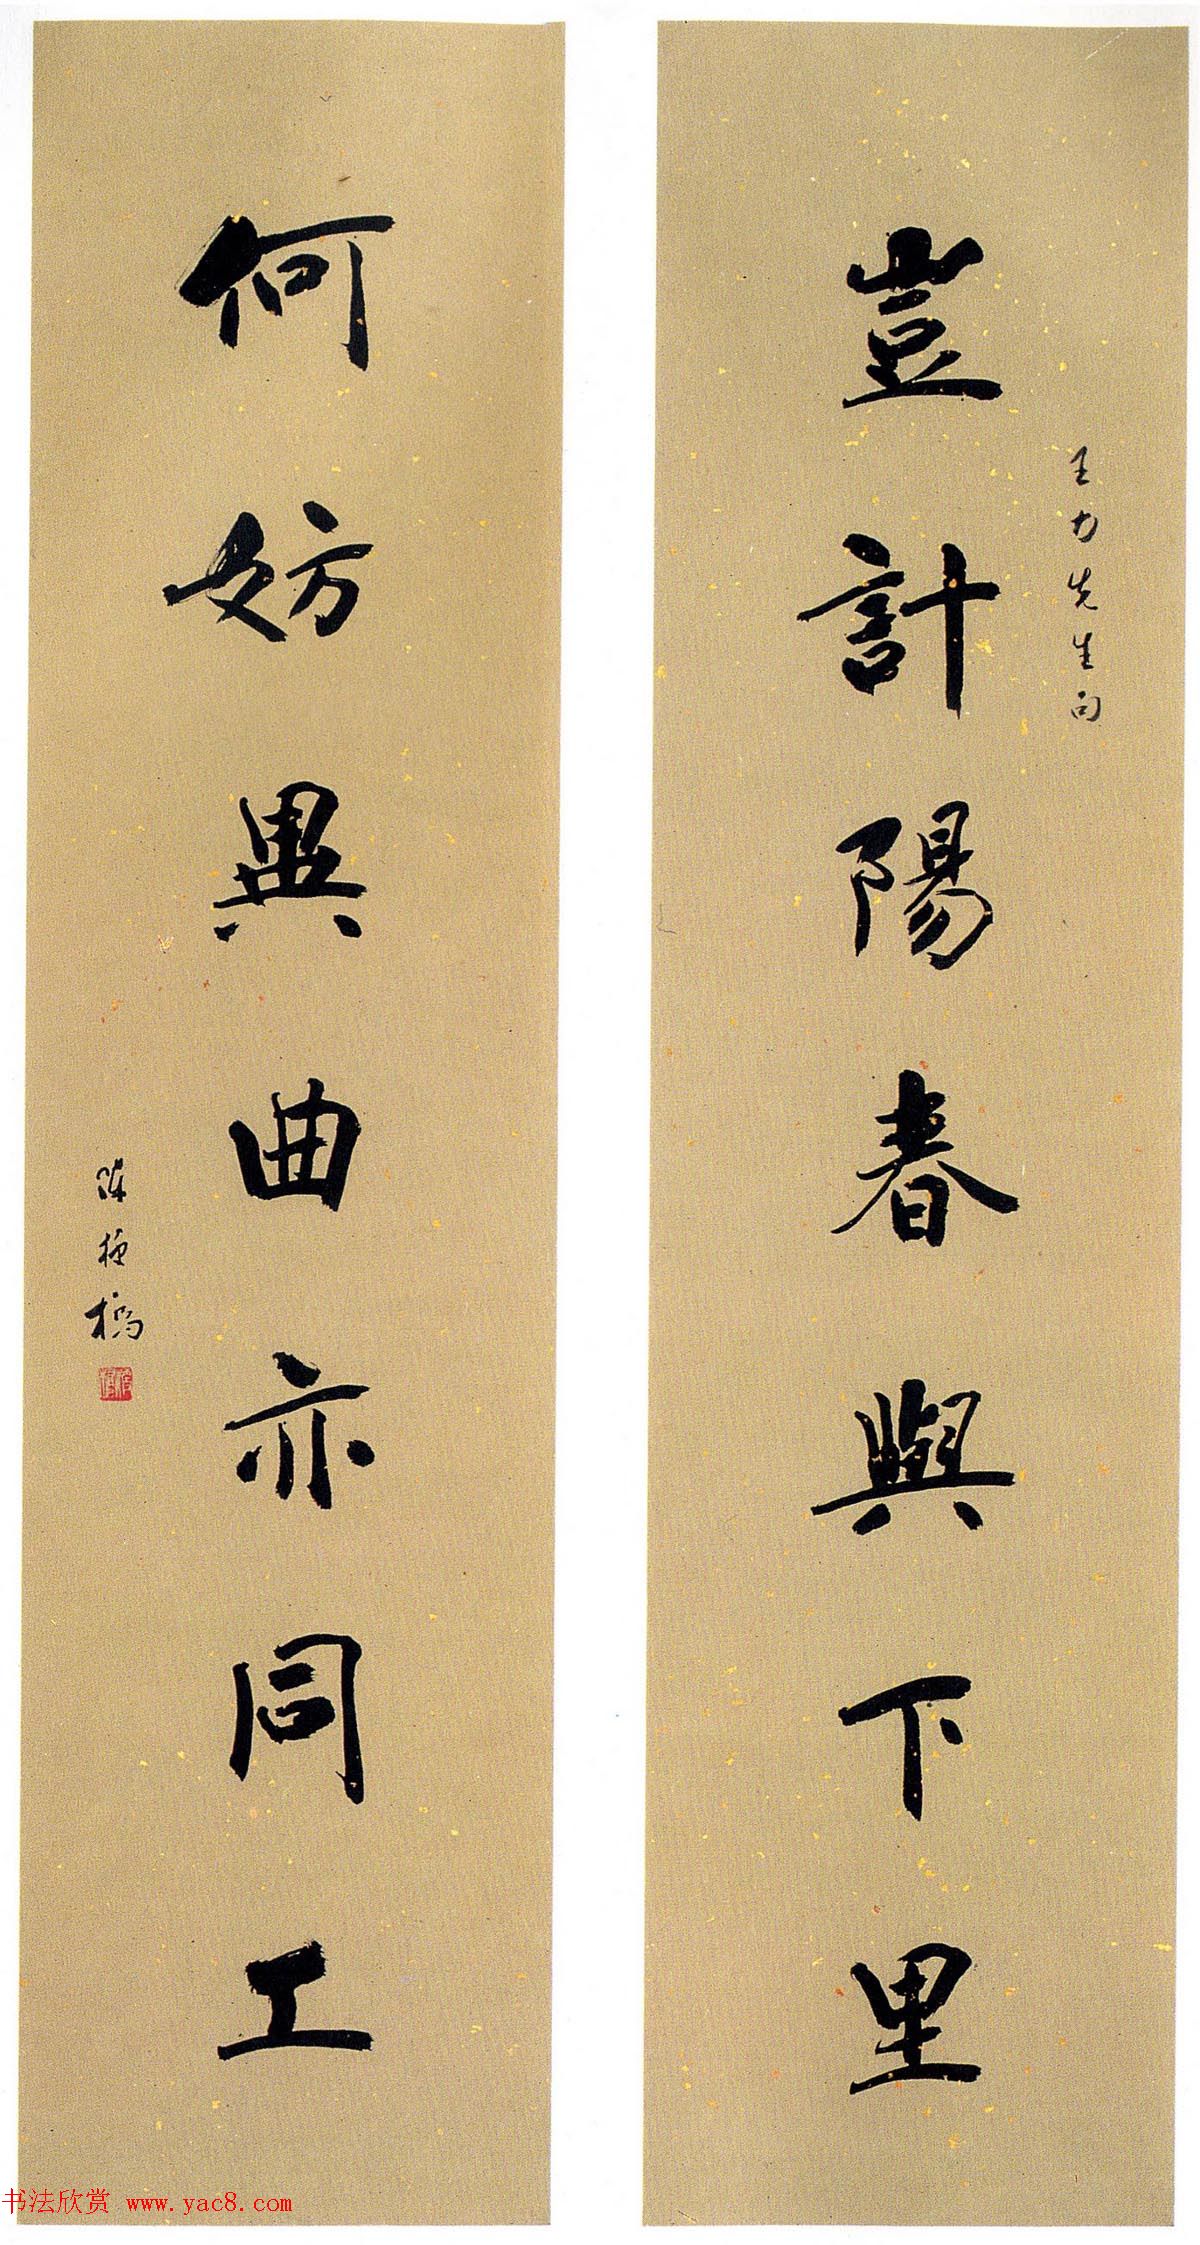 豈計陽春與下里
王力先生句
何妨異曲亦同工
陳
書法欣赏 www.yac8.com